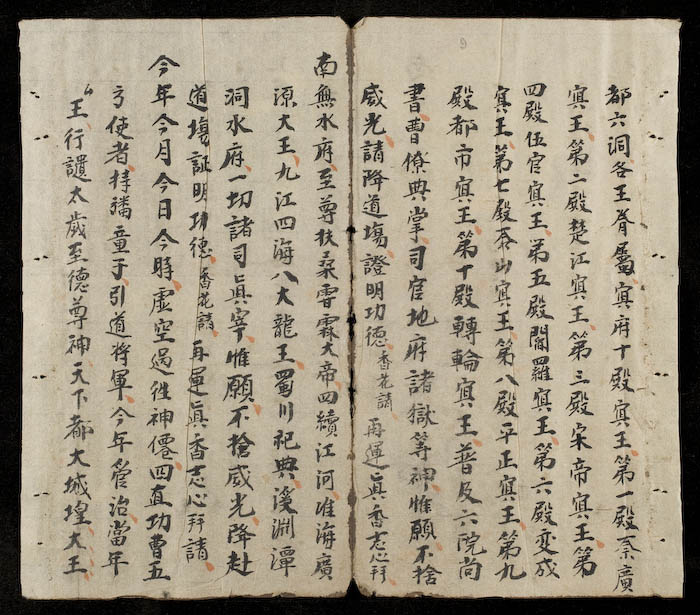 都六洞各王脊屬冥府十殿冥王第一殿秦廣
冥王第二殿楚江冥王第三殿宋帝冥王第
四殿伍官冥王第五殿閻羅冥王第六殿变成
冥王第七殿泰山冥王第八殿平正冥王第九
殿都市冥王第十殿轉輪冥王普及六院尚
書曹僚典掌司官地府諸獄等神惟願不捨
威光請降道塲證明功德香花請再運眞香志心拜
南無水府至尊扶桑霅霖大帝四續江河淮海廣
源大王九江四海八大龍王蜀川祀典溪淵潭
洞水府一切諸司眞宰惟願不捨威光降赴
道塲証明功德香花請再運眞香志心拜請
今年今月今日今時虛空過徃神僊四直功曹五
方使者持旛童子引道将軍今年管治當年
王行譴太歲至德尊神天下都大城堭大王